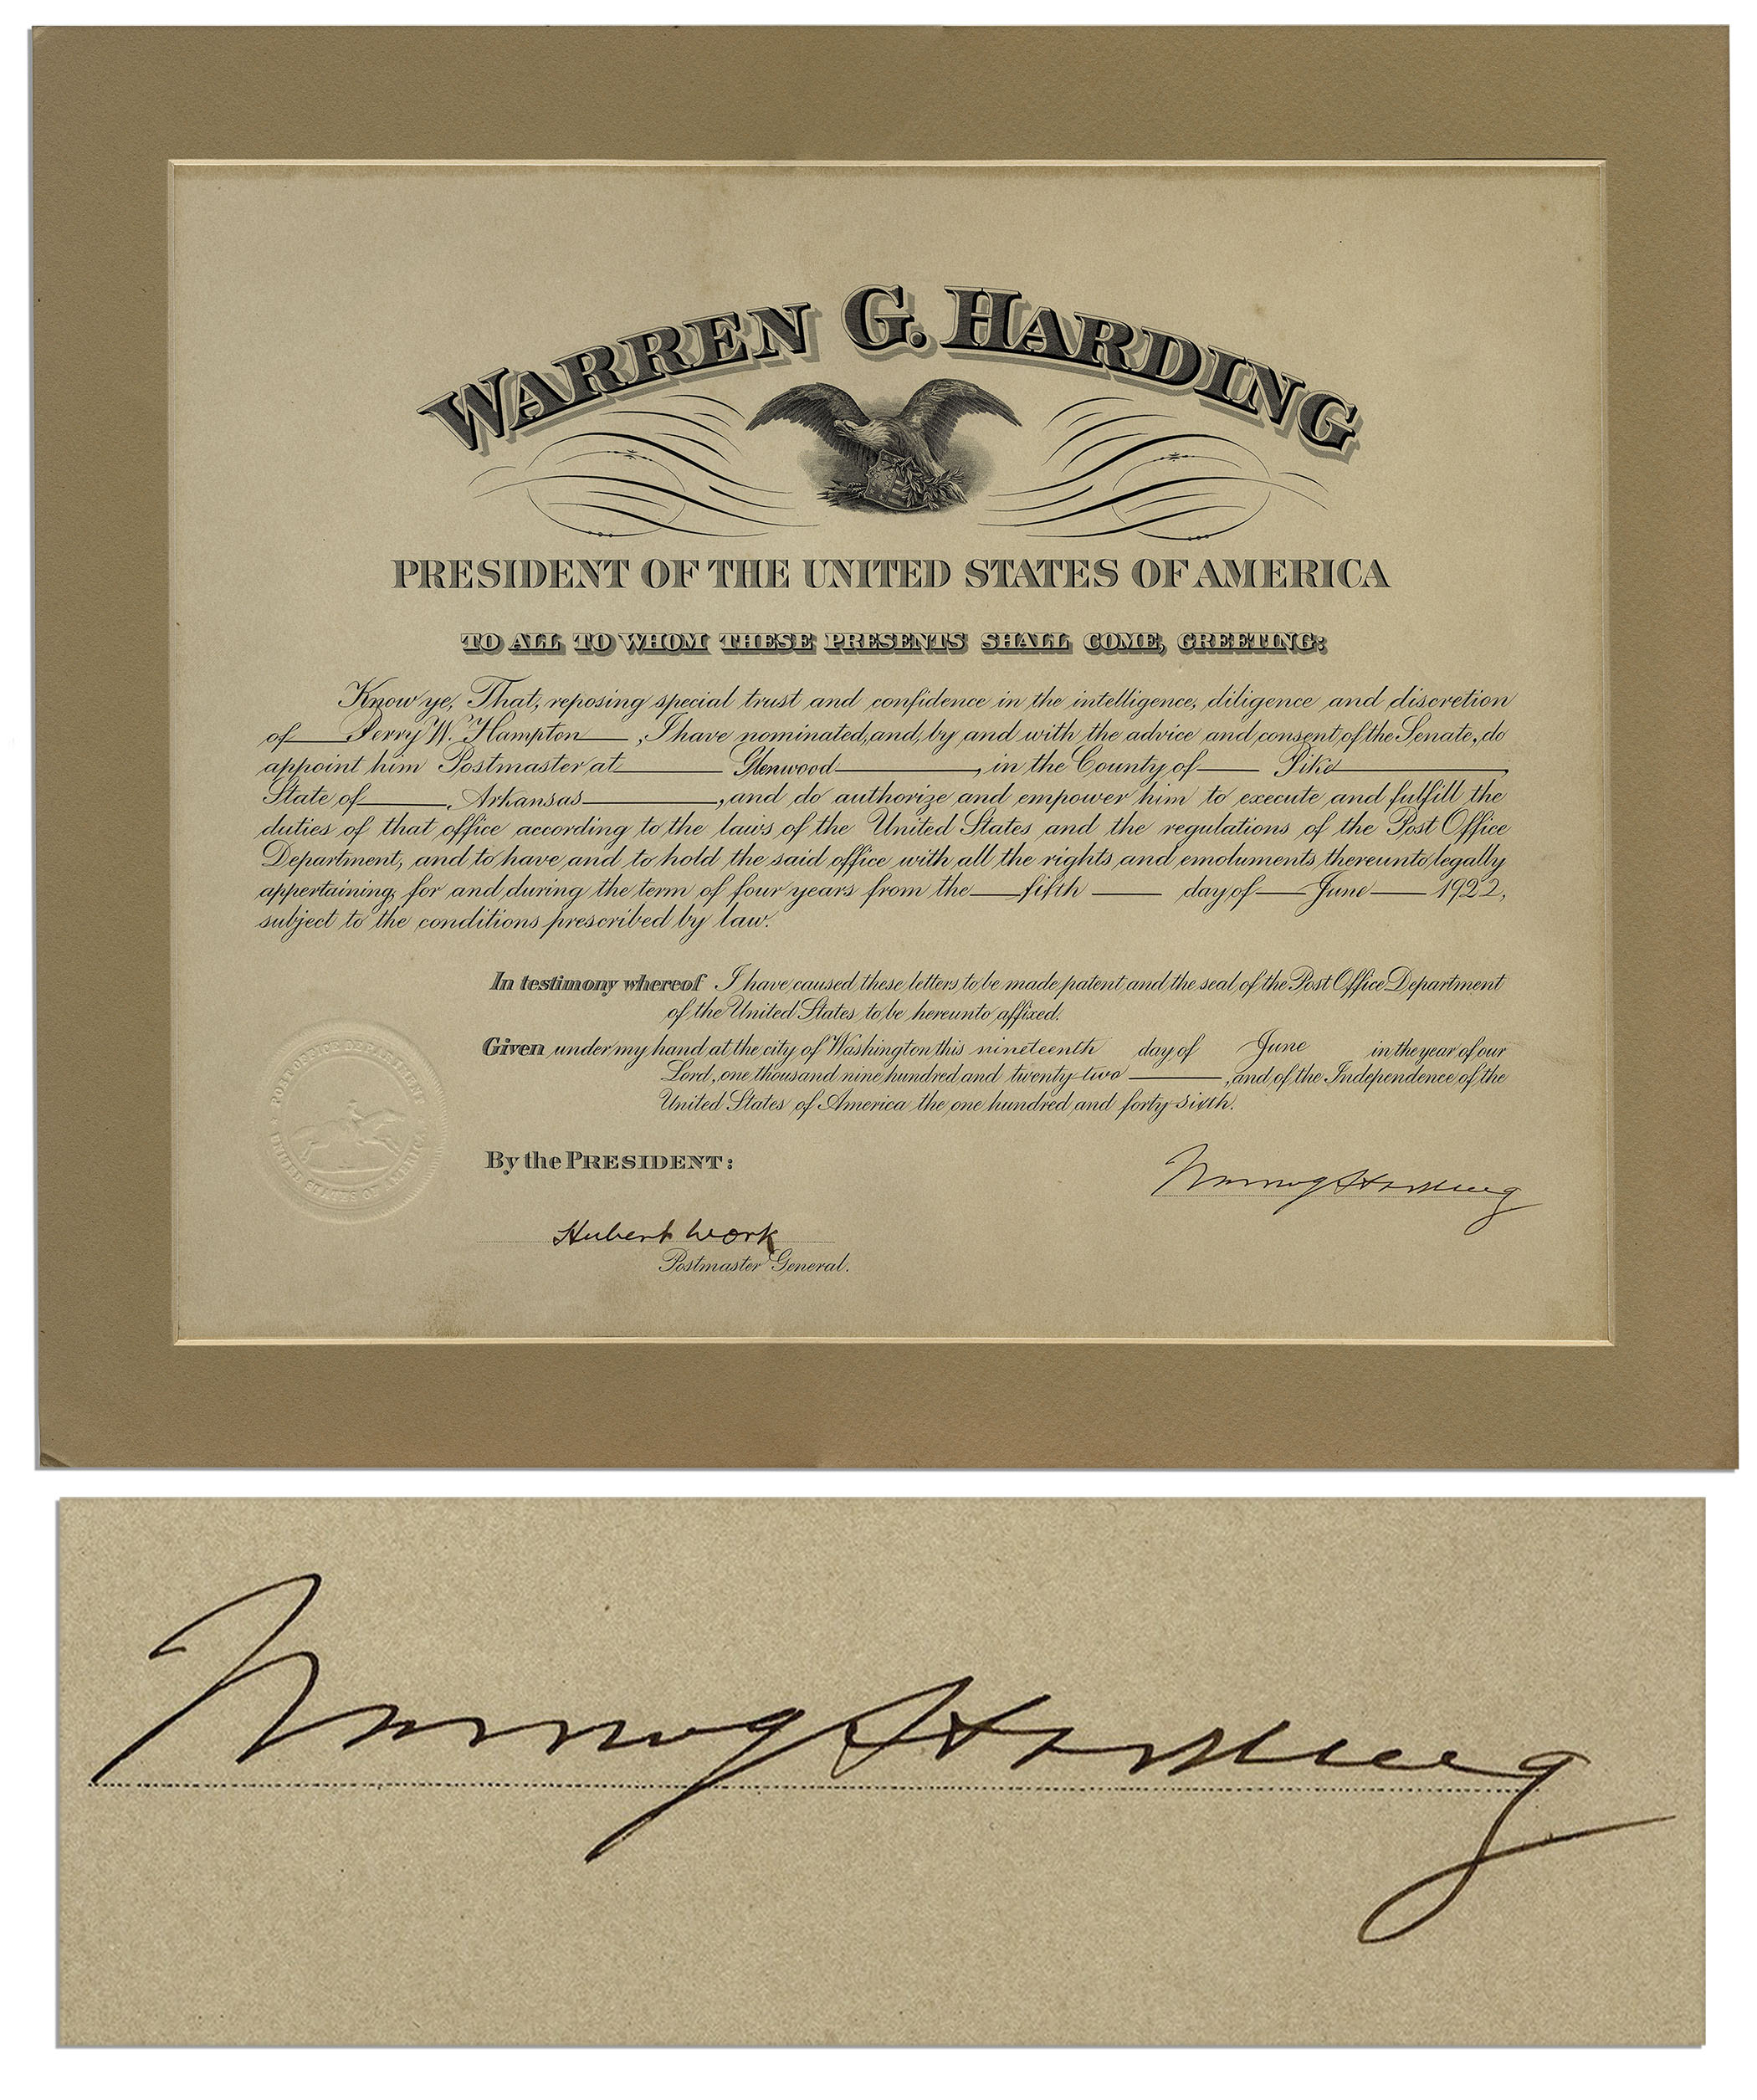 WARREN G. HARDING
PRESIDENT OF THE UNITED STATES OF AMERICA
TO ALL TO WHOM THESE PRESENTS SHALL COME, GREETING:
Know ye, That, reposing special trust and confidence in the intelligence, diligence and discretion
of Perry W. Hampton, I have nominated, and, by and with the advice and consent of the Senate, do
appoint him Postmaster at Glenwood, in the County of Pike
State of Arkansas, and do authorize and empower him to execute and fulfill the
duties of that office according to the laws of the United States and the regulations of the Post Office
Department, and to have and to hold the said office with all the rights and emoluments thereunto legally
appertaining, for and during the term of four years from the fifth day of June 1922,
subject to the conditions prescribed by law.
In testimony whereof I have caused these letters to be made patent and the seal of the Post Office Department
of the United States to be hereunto affixed.
Given under my hand at the city of Washington this nineteenth day of June in the year of our
Lord, one thousand nine hundred and twenty-two, and of the Independence of the
United States of America the one hundred and forty-sixth.
POST OFFICE DEPARTMENT
UNITED STATES OF AMERICA
By the PRESIDENT:
Warren G Harding
Hubert Work
Postmaster General.
Warren G Harding